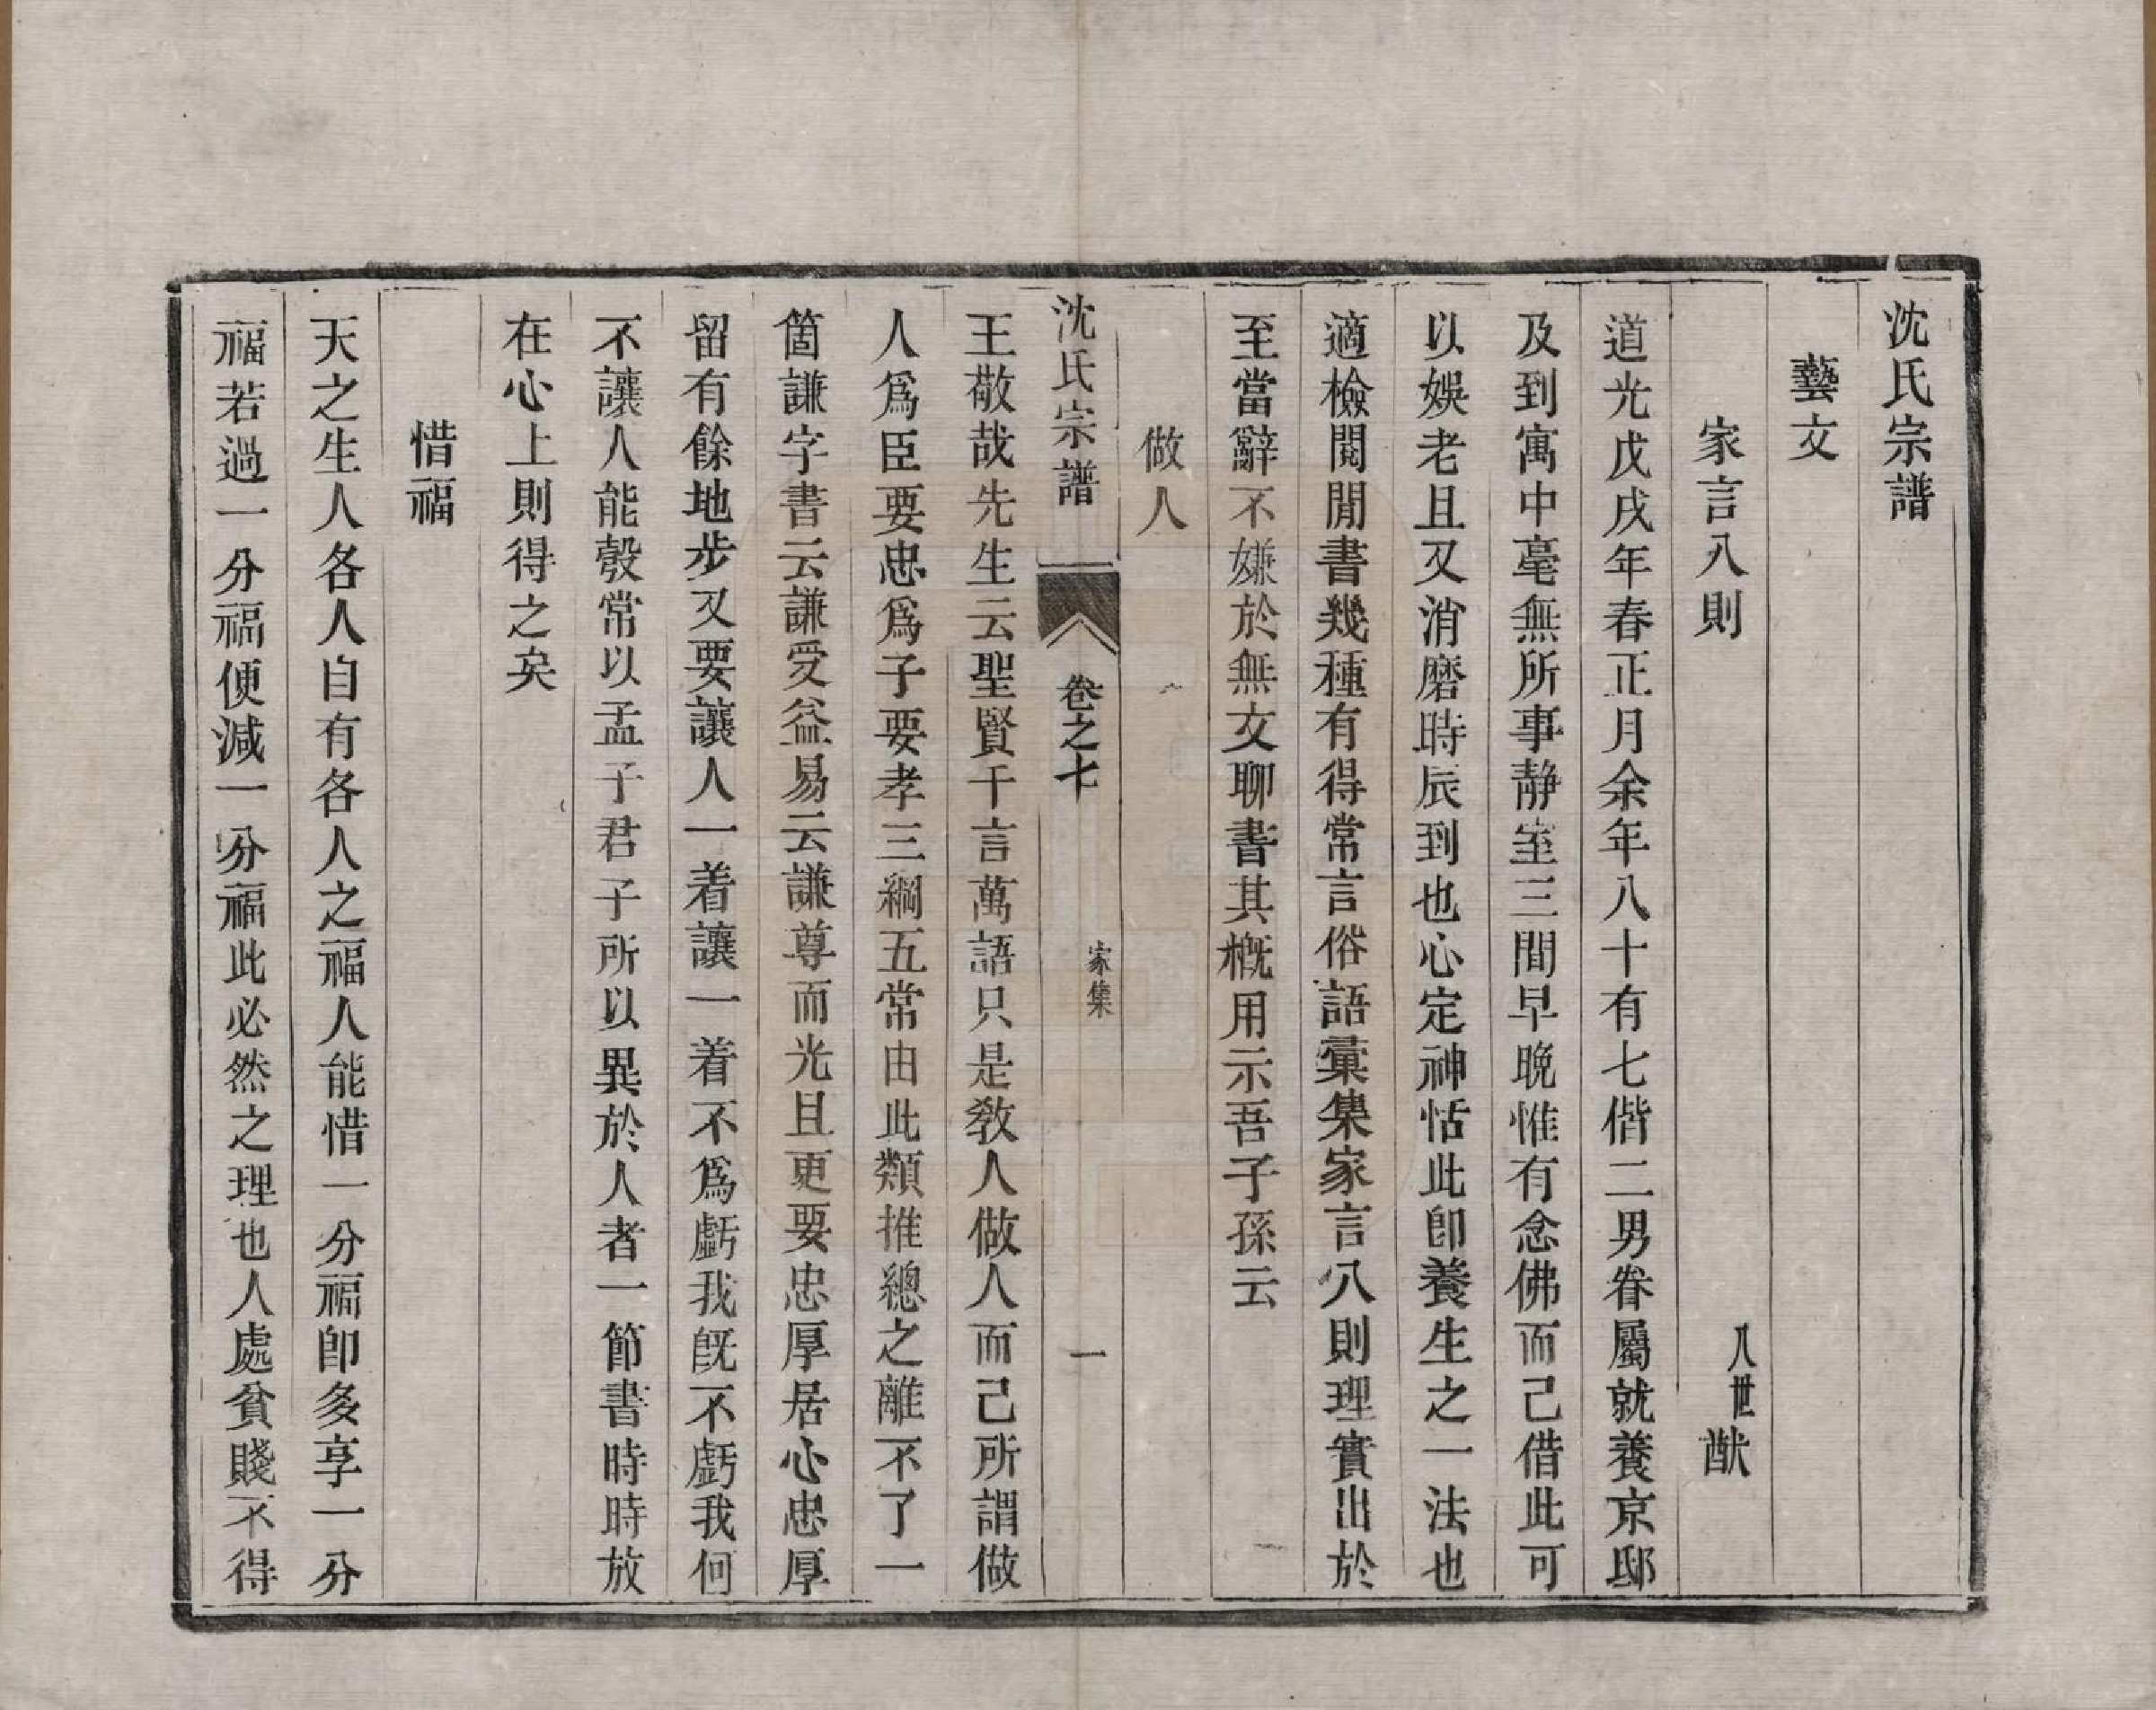 沈氏宗譜
藝文
家言八則
八世 猷
道光戊戌年春正月余年八十有七偕二男眷屬就養京邸
及到寓中毫無所事靜室三間早晚惟有念佛而已借此可
以娛老且又消磨時辰到也心定神恬此卽養生之一法也
適檢閱閒書幾種有得常言俗語彙集家言八則理實出於
至當辭不嫌於無文聊書其概用示吾子孫云
做人
沈氏宗譜
卷之七
家集
一
王敬哉先生云聖賢千言萬語只是敎人做人而已所謂做
人爲臣要忠爲子要孝三綱五常由此類推總之離不了一
箇謙字書云謙受益易云謙尊而光且更要忠厚居心忠厚
留有餘地步又要讓人一着讓一着不爲虧我旣不虧我何
不讓人能彀常以孟子君子所以異於人者一節書時時放
在心上則得之矣
惜福
天之生人各人自有各人之福人能惜一分福卽多享一分
福若過一分福便減一分福此必然之理也人處貧賤不得